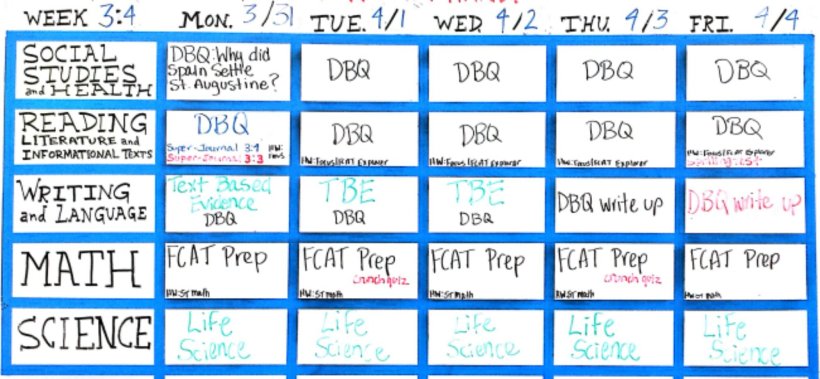 WEEK 3:4
MON. 3/31
TUE. 4/1
WED 4/2
THU. 4/3
FRI. 4/4
SOCIAL
STUDIES
and HEALTH
DBQ: Why did
Spain Settle
St. Augustine?
DBQ
DBQ
DBQ
DBQ
READING
LITERATURE and
INFORMATIONAL TEXTS
DBQ
Super-Journal 3:4
Super-Journal 3:3
HW:
DBQ
HW: Focus/FCAT Explorer
DBQ
HW: Focus/FCAT Explorer
DBQ
HW: Focus/FCAT Explorer
DBQ
HW: Focus/FCAT Explorer
WRITING
and LANGUAGE
Text Based
Evidence
DBQ
TBE
DBQ
TBE
DBQ
DBQ write up
DBQ write up
MATH
FCAT Prep
HW: ST math
FCAT Prep
crunch quiz
HW: ST math
FCAT Prep
HW: ST math
FCAT Prep
crunch quiz
HW: ST math
FCAT Prep
HW: ST math
SCIENCE
Life
Science
Life
Science
Life
Science
Life
Science
Life
Science